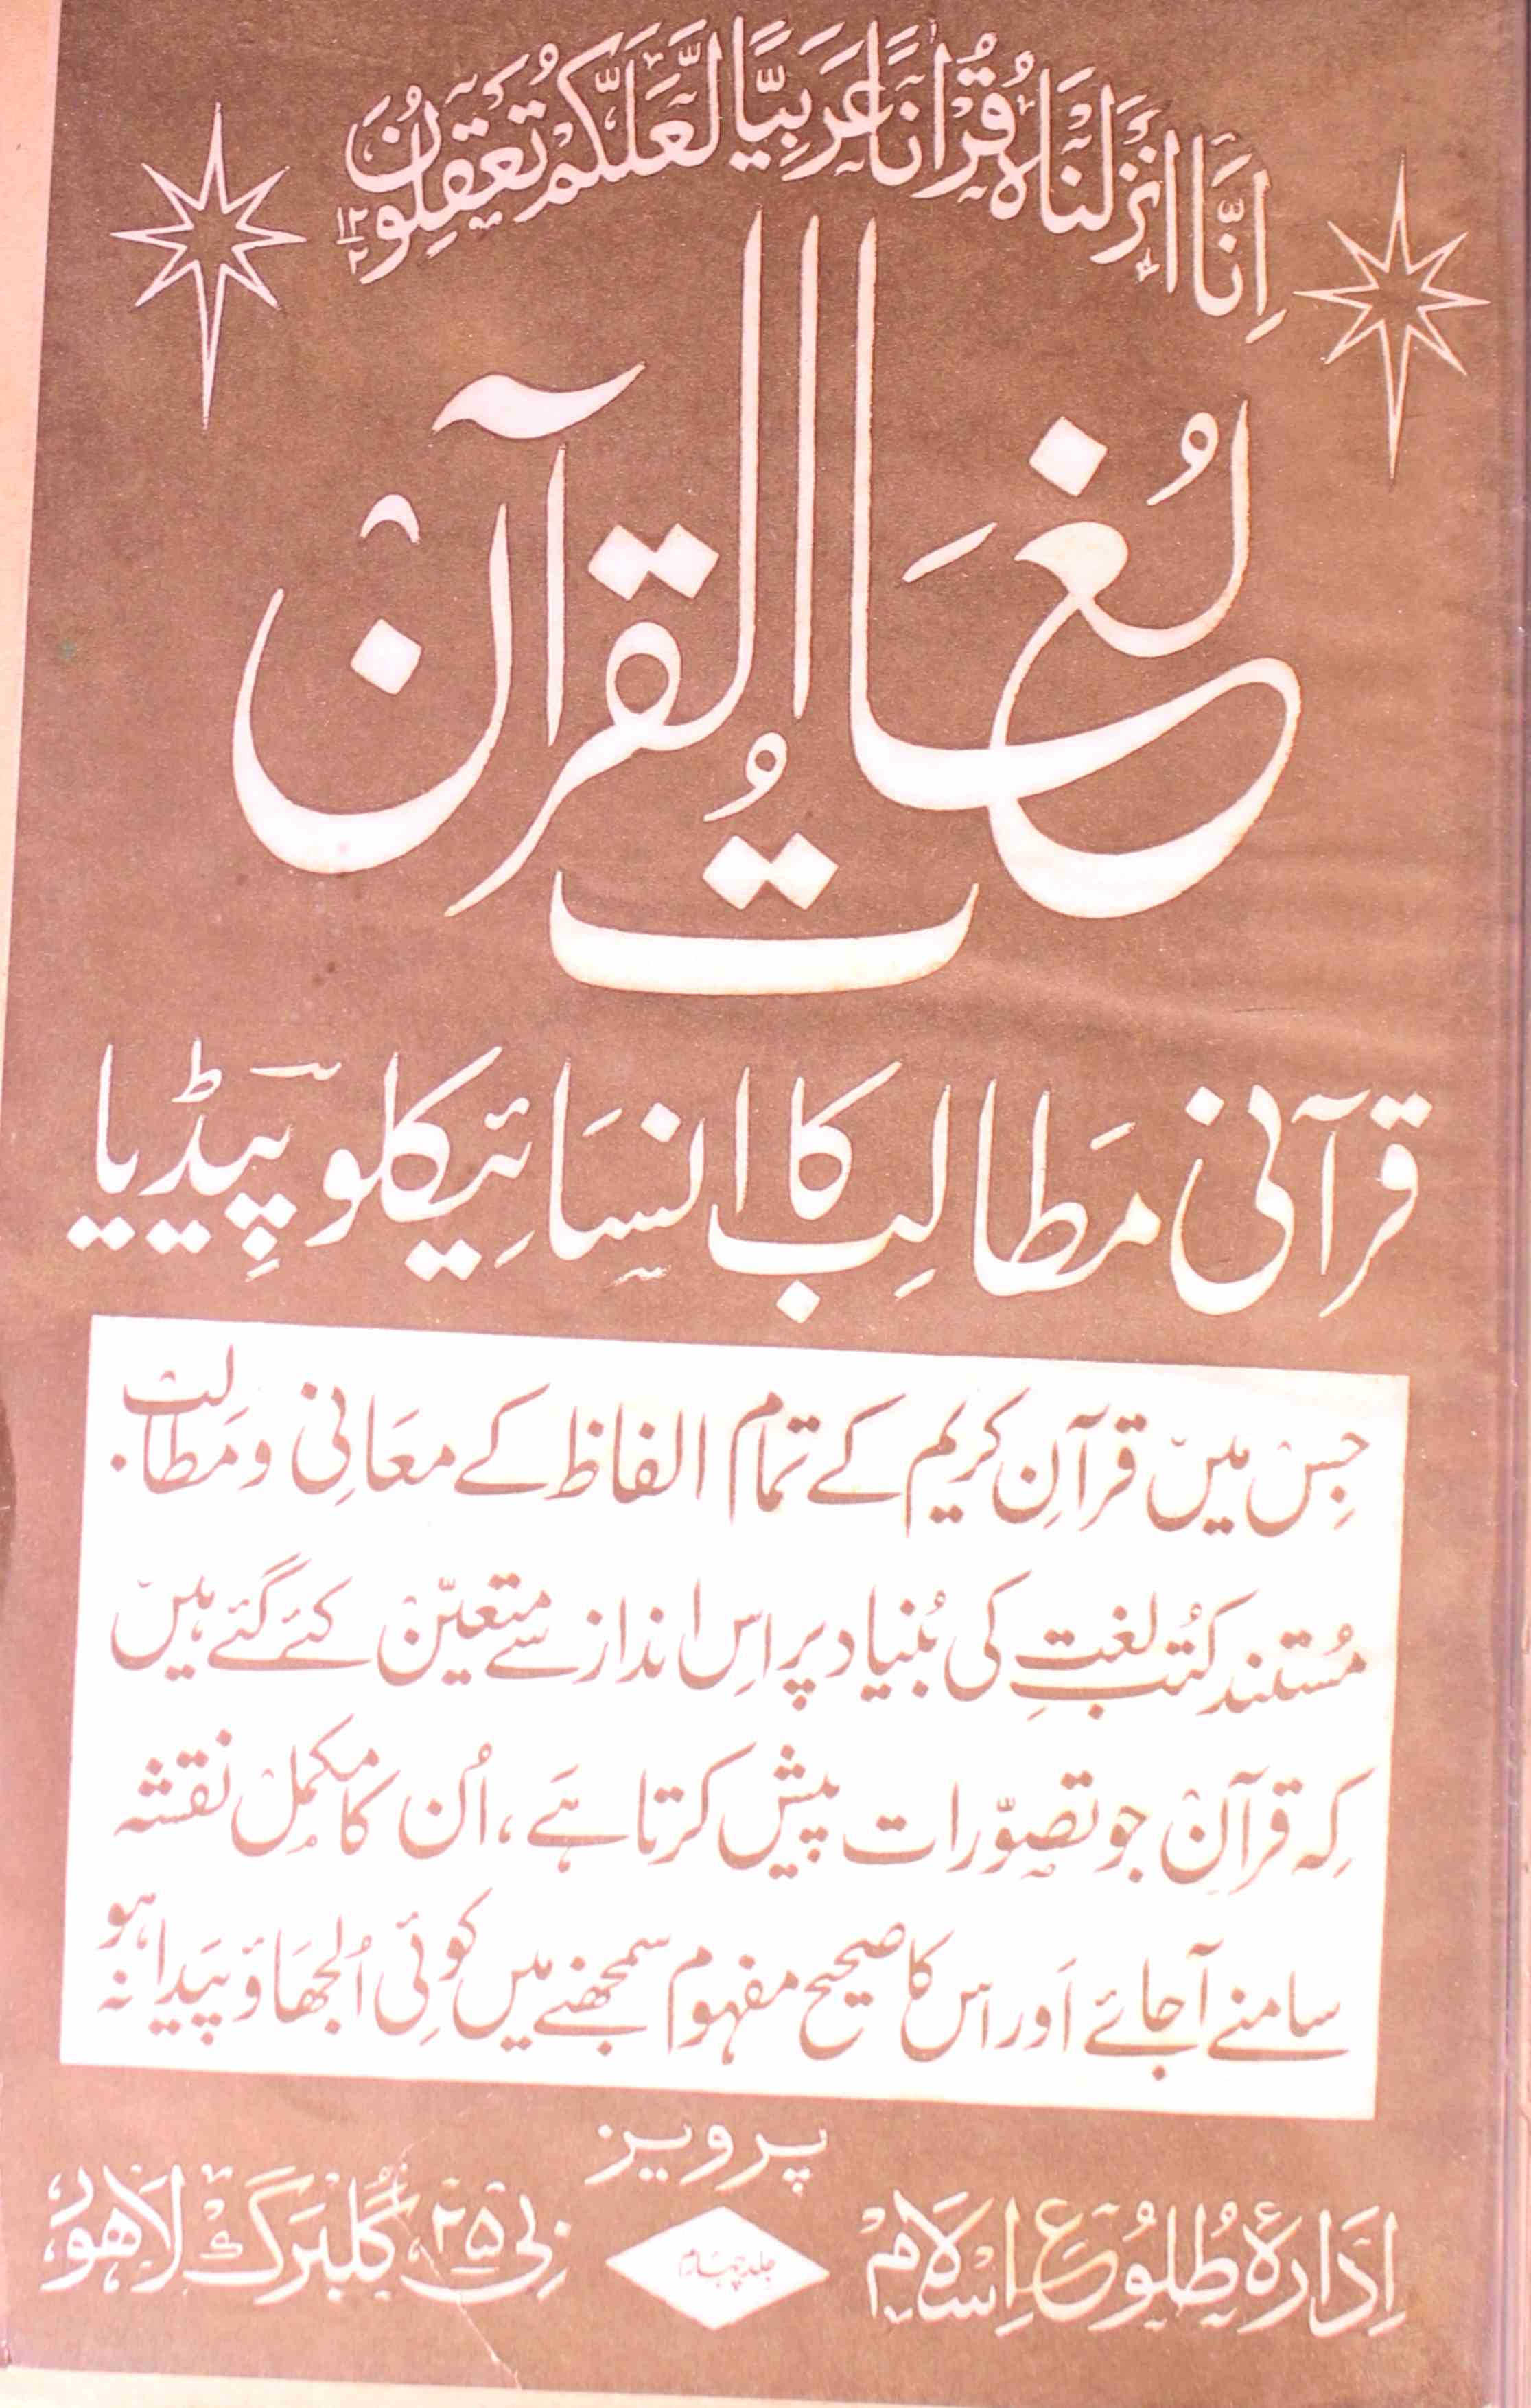 اِنَّا اَنْزَلْنَاہُ قُرْاٰنًا عَرَبِیًّا لَّعَلَّکُمْ تَعْقِلُوْنَ ۱۲/۲
لُغَاتُ القرآن
قرآنی مَطالِب کا انسَائیکلوپیڈیا
جِس میں قرآنِ کریم کے تمام الفاظ کے معَانِی و مَطالب
مُستند کتُبِ لغت کی بُنیاد پر اِس انداز سے متعیّن کئے گئے ہیں
کِہ قرآن جو تصوّرات پیش کرتا ہَے، اُن کا مکمل نقشہ
سامنے آجائے اَور اس کا صحیح مفہوم سمجھنے میں کوئی اُلجھاؤ پَیدا نہ ہو
پرویز
اِدَارۂ طُلُوعِ اِسْلَام
جلد چہارم
بی ۲۵، گلبَرگ لاھور